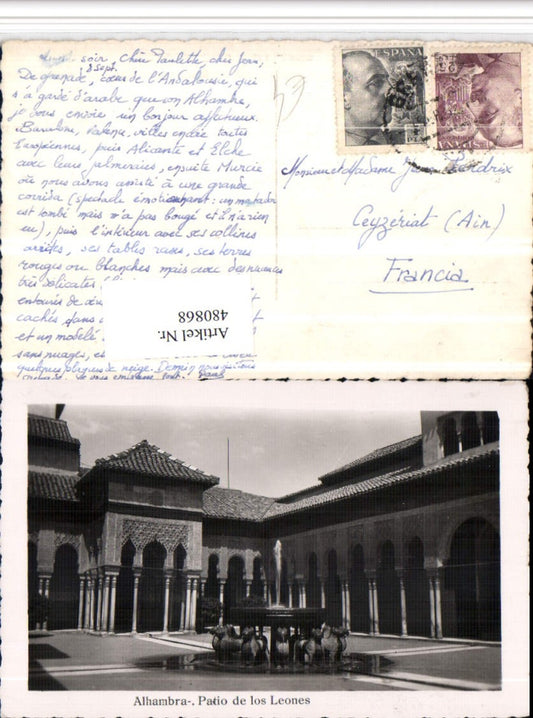 soir, Chère Paulette, cher Jean,
3 Sept.
De grenade, cœur de l'Andalousie, qui
s'a gardé d'arabe que son Alhambra,
je vous envoie un bonjour affectueux.
Barcelone, Valence, villes encore toutes
européennes, puis Alicante et Elche
avec leurs palmeraies, ensuite Murcie
où nous avons assisté à une grande
corrida (spectacle émotionnant: un matador
est tombé mais n'a pas bougé et il n'a rien
eu), puis l'intérieur avec ses collines
arides, ses tables rases, ses terres
rouges ou blanches mais avec des nuances
très délicates
entourés de
cachés dans
et un modelé
sans nuages, es
quelques plaques de neige. Demain nous
53
ESPAÑA
ESPAÑA
Monsieur et Madame Jean
Ceyzériat (Ain)
Francia
Artikel Nr.
480868
Alhambra-. Patio de los Leones